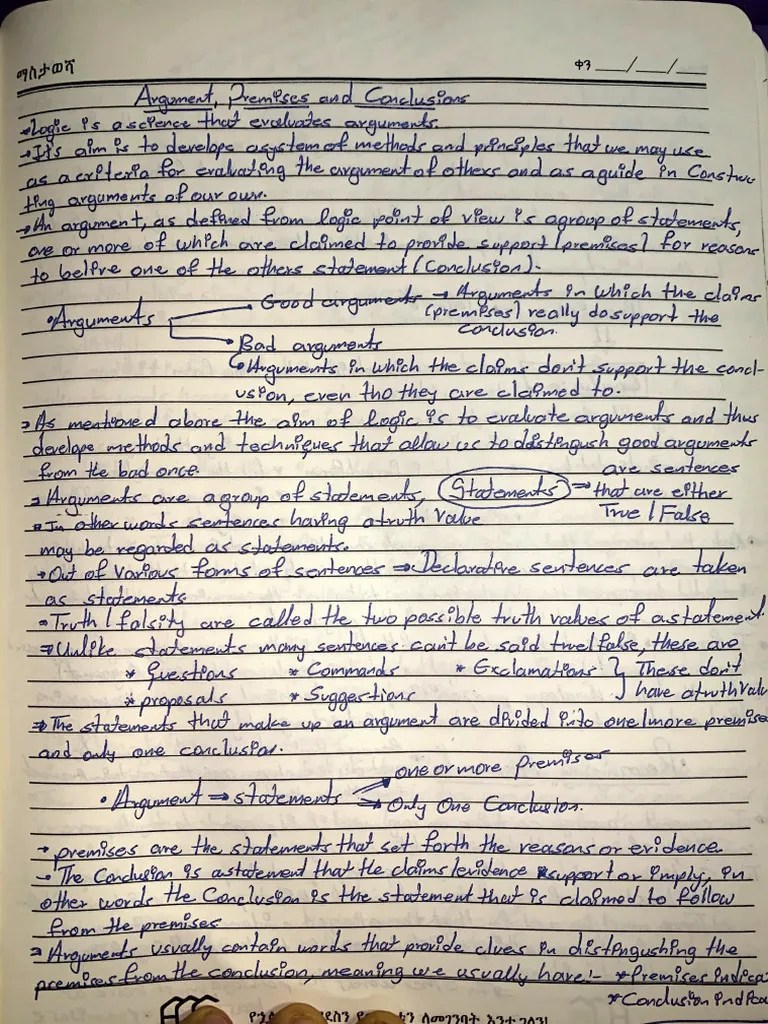 ማስታወሻ
ቀን ___/___/___
Argument, Premises and Conclusions
→Logic is a science that evaluates arguments.
→It's aim is to develope a system of methods and principles that we may use
as a criteria for evaluating the argument of others and as a guide in Constru-
ting arguments of our own.
→An argument, as defined from logic point of view is a group of statements,
one or more of which are claimed to provide support (premises) for reasons
to belive one of the others statement (Conclusion).
•Arguments
Good arguments → Arguments in which the claims
(premises) really do support the
conclusion.
Bad arguments
Arguments in which the claims don't support the concl-
usion, even tho they are claimed to.
→As mentioned above the aim of logic is to evaluate arguments and thus
develope methods and techniques that allow us to distingush good arguments
from the bad once.
→Arguments are a group of statements, Statements ⇒ are sentences
that are either
True/False
* In other words sentences having a truth value
may be regarded as statements.
→Out of various forms of sentences ⇒ Declarative sentences are taken
as statements
→Truth/falsity are called the two possible truth values of a statement.
⇒Unlike statements many sentences can't be said true/false, these are
* Questions * Commands * Exclamations } These don't
* proposals * Suggestions have a truth valu
⇒The statements that make up an argument are divided into one/more premise
and only one conclusion.
• Argument ⇒ statements
one or more premises
⇒ Only One Conclusion.
→ premises are the statements that set forth the reasons or evidence.
→ The Conclusion is a statement that the claims/evidence support or imply, in
other words the Conclusion is the statement that is claimed to follow
from the premises
→Arguments usually contain words that provide clues in distingushing the
premises from the conclusion, meaning we usually have:- *Premises indica
*Conclusion indica
ለመገንባት እንተጋለን!